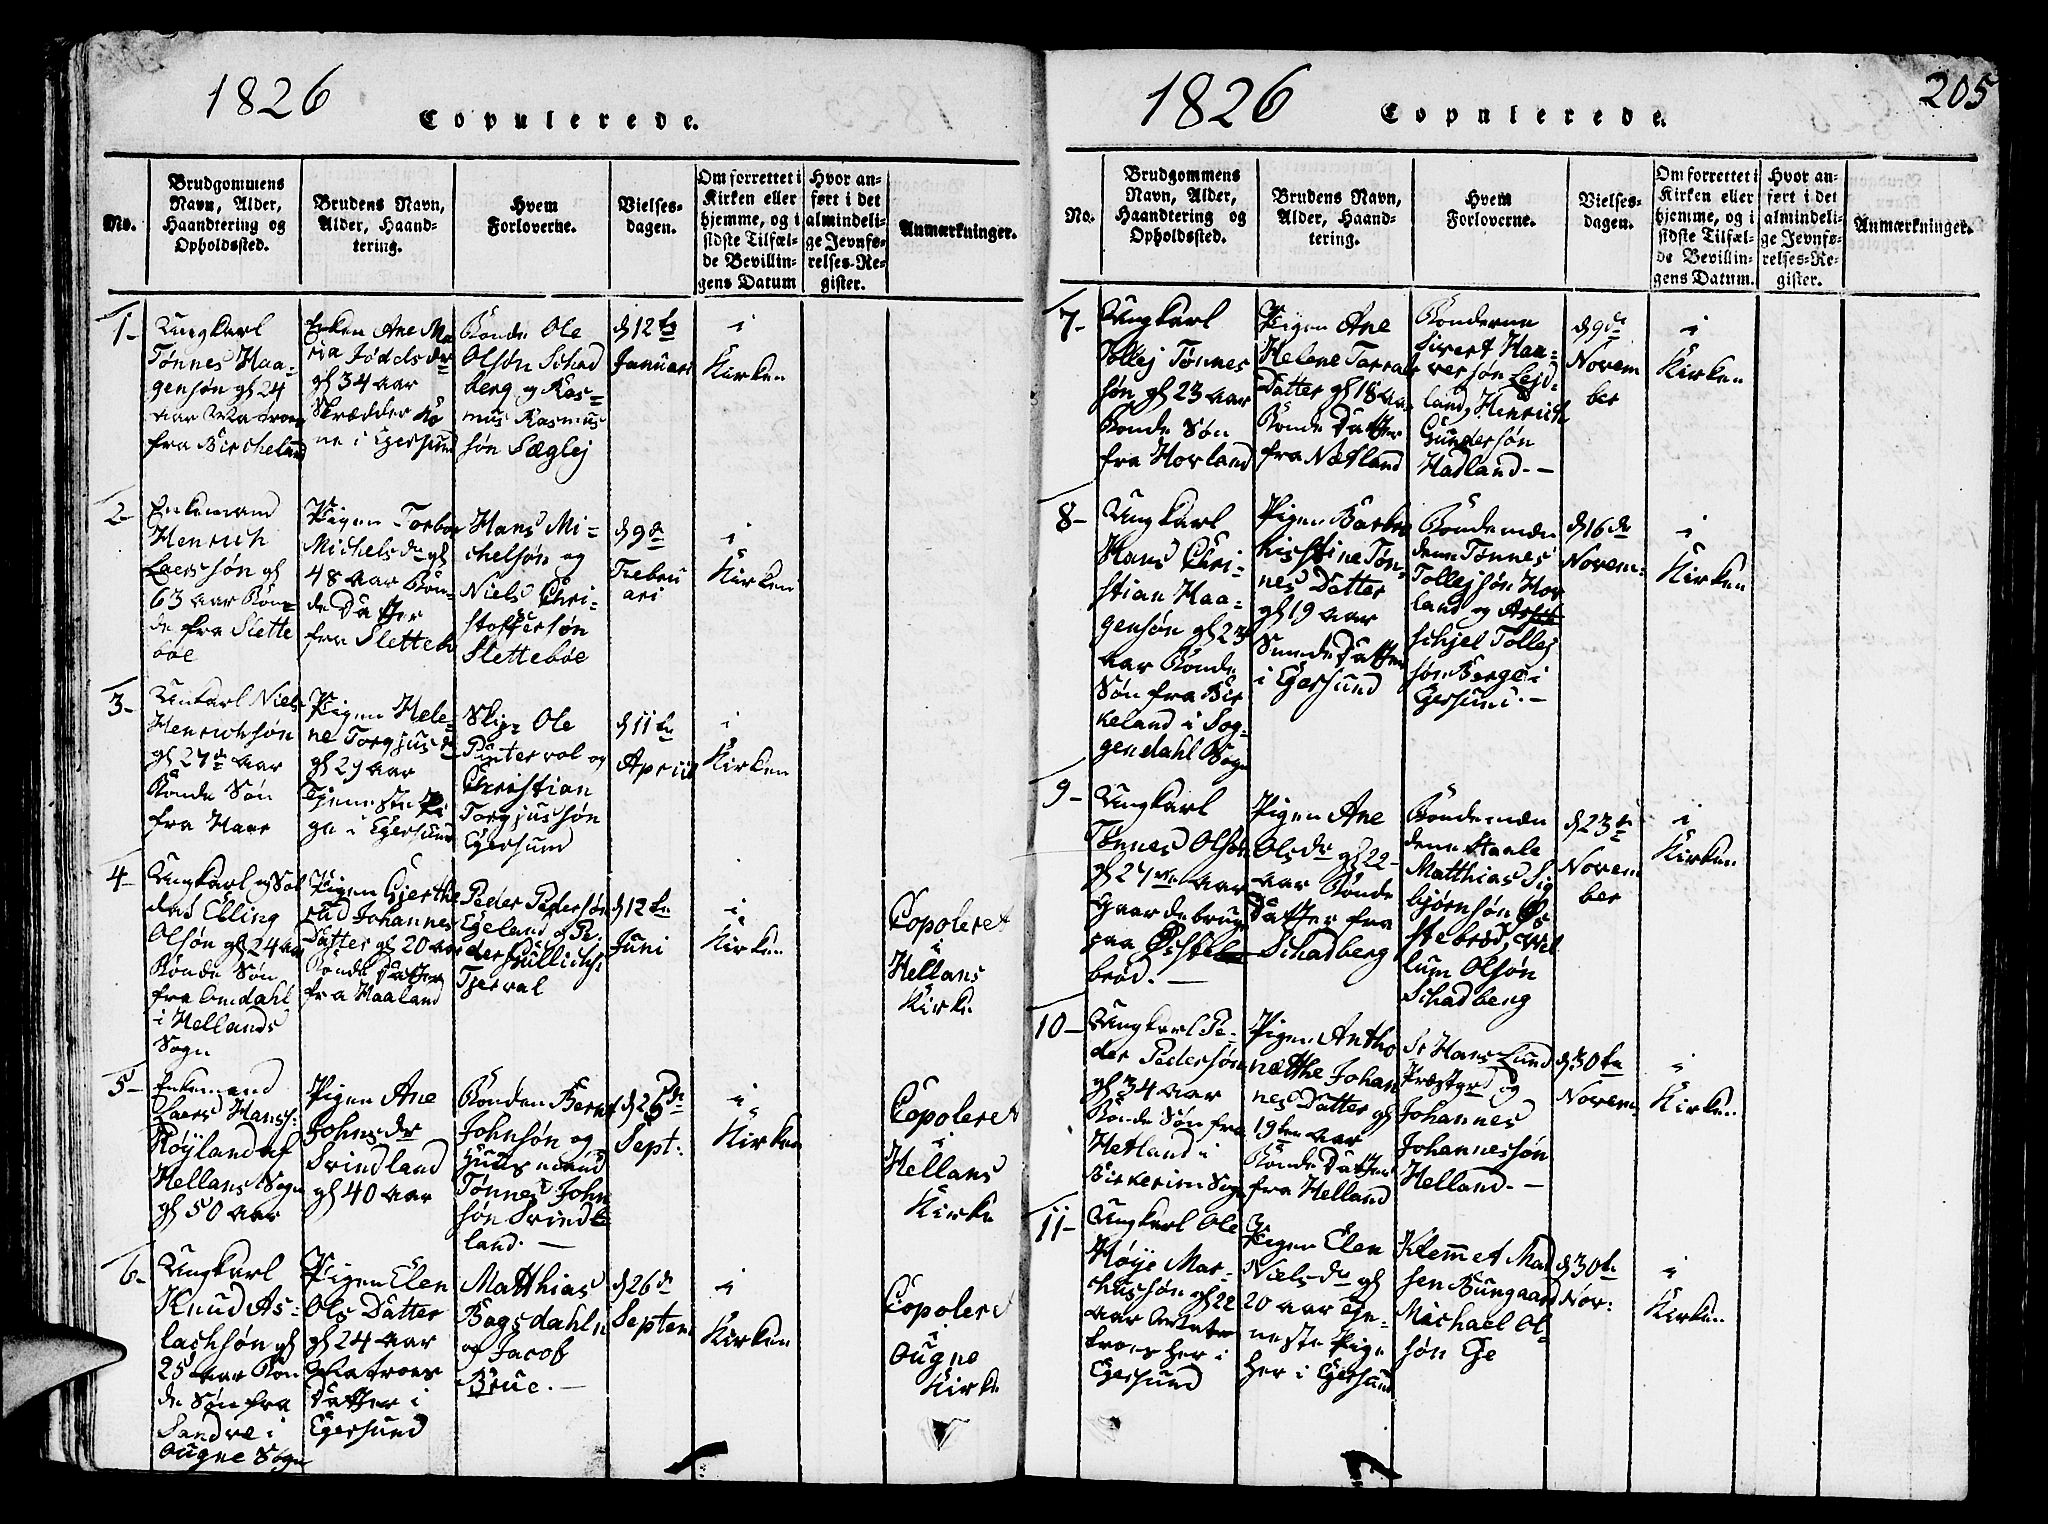 1826
Copulerede.
No.
Brudgommens
Navn, Alder,
Haandtering og
Opholdssted.
Brudens Navn,
Alder, Haand-
tering.
Hvem
Forloverne.
Vielses-
dagen.
Om forrettet i
Kirken eller
hjemme, og i
sidste Tilfæl-
de Bevillin-
gens Datum
Hvor an-
ført i det
almindeli-
ge Jevnfø-
relses-Re-
gister.
Anmærkninger.
1-
Ungkarl
Tønnes Haa-
gensøn gl 24
aar Matroes
fra Bircheland
Enken Ane Ma
ria Jødelsdr
gl 34 aar
Skrædder Ko
ne i Egersund
Bonde Ole
Olsøn Schad
berg og Ras-
mus Rasmus
søn Sæglej
d 12te
Januari
i
Kirken
2-
Enkemand
Henrich
Laerssøn gl
63 aar Bon-
de fra Slette
böe
Pigen Torbor
Michelsdr gl
48 aar Bon-
de Datter
fra Sletteb
Hans Mi-
chelsøn og
Niels Chri-
stoffersøn
Slettebøe
d 9de
Febru
ari
i
Kirken
3-
Unkarl Niels
Henrichsøn
gl 27de aar
Bonde Søn
fra Haar
Pigen Hele-
ne Torgjusdr
gl 29 aar
Tjeneste Pi
ge i Egersund
Skipr Ole
Puntervol og
Christian
Torgjussøn
Egersund
d 11te
Apriil
i
Kirken
4-
Ungkarl og Sol
dat Ebling
Olsøn gl 24 aar
Bonde Søn
fra Omdahl
i Hellands
Sogn
Pigen Gjerthe
rud Johannes
Datter gl 20 aar
Bonde Datter
fra Haaland
Peder Pedersøn
Egeland og Pe-
der Gullichs:
Tjerval
d 12te
Juni
i
Kirken
Copoleret
i
Hellans
Kirke
5-
Enkemand
Laers Hanss:
Røyland af
Hellans Sogn
gl 50 aar
Pigen Ane
Johnsdr
Svindland
gl 40 aar
Bonden Bernt
Johnsøn og
Huusmand
Tønnes John
søn Svind
land.—
d 26de
Sept:
i
Kirken
Copoleret
i
Hellans
Kirke
6-
Ungkarl
Knud As-
lachsøn gl
25 aar Bon
de Søn fra
Sandve i
Ougne Sogn
Pigen Elen
Ols Datter
gl 24 aar
Matroes
Datter i
Egersund
Matthias
Bogsdahln
og Jacob
Brue.—
d 26de
Septem
i
Kirken
Copoleret
i
Ougne
Kirke
1826
Copulerede.
205
No.
Brudgommens
Navn, Alder,
Haandtering og
Opholdssted.
Brudens Navn,
Alder, Haand-
tering.
Hvem
Forloverne.
Vielses-
dagen.
Om forrettet i
Kirken eller
hjemme, og i
sidste Tilfæl-
de Bevillin-
gens Datum.
Hvor an-
ført i det
almindeli-
ge Jevnfø-
relses-Re-
gister.
Anmærkninger.
7-
Ungkarl
Tollej Tønnes
søn gl 23 aar
Bonde Søn
fra Horland
Pigen Ane
Helene Tarrals
Datter gl 18 aar
Bonde Datter
fra Nætland
Bønderne
Sivert Haa-
versøn Lejd-
land, Henrich
Gundersøn
Hadland.—
d 9de
Novem
ber
i
Kirken
8-
Ungkarl
Hans Chri-
stian Haa-
gensøn gl 23
aar Bonde
Søn fra Bir
keland i Sog-
gendahl Sogn
Pigen Barbra
Kisstine Tøn-
nes Datter
gl 19 aar
Smede Datter
i Egersund
Bondemæn
dene Tønnes
Tollejsøn Hor
land og
schjel Tollej
søn Berge i
Egersund.—
d 16de
Novem:
i
Kirken
9-
Ungkarl
Tønnes Olsøn
gl 27 aar
Gaardebruge
paa Østebrød.—
Pigen Ane
Olsdr gl 22-
aar Bonde
Datter fra
Schadberg
Bondemæn
dene Staale
Matthias Sig
bjørnsøn Øs
stebrød, Wil
lum Olsøn
Schadberg
d 23de
Novem
ber
i
Kirken
10-
Ungkarl Pe-
der Pedersøn
gl 34 aar
Bonde Søn fra
Hetland i
Birkerim Sogn
Pigen Antho
nætthe Johan
nes Datter gl
19ten aar
Bonde Datter
fra Helland
Sr Hans Lund
Præstgrd og
Johannes
Johannessøn
Helland.—
d 30te
Novem
i
Kirken
11-
Ungkarl Ole
Høÿe Mar-
chussøn gl 22
aar Matroes her i
Egersund
Pigen Elen
Nielsdr gl
20 aar Tje-
neste Pige
her i Egersund
Klemmet Mad
sen Bungaard
Michael Ol-
søn Eie
d 30te
Nov:
i
Kirken